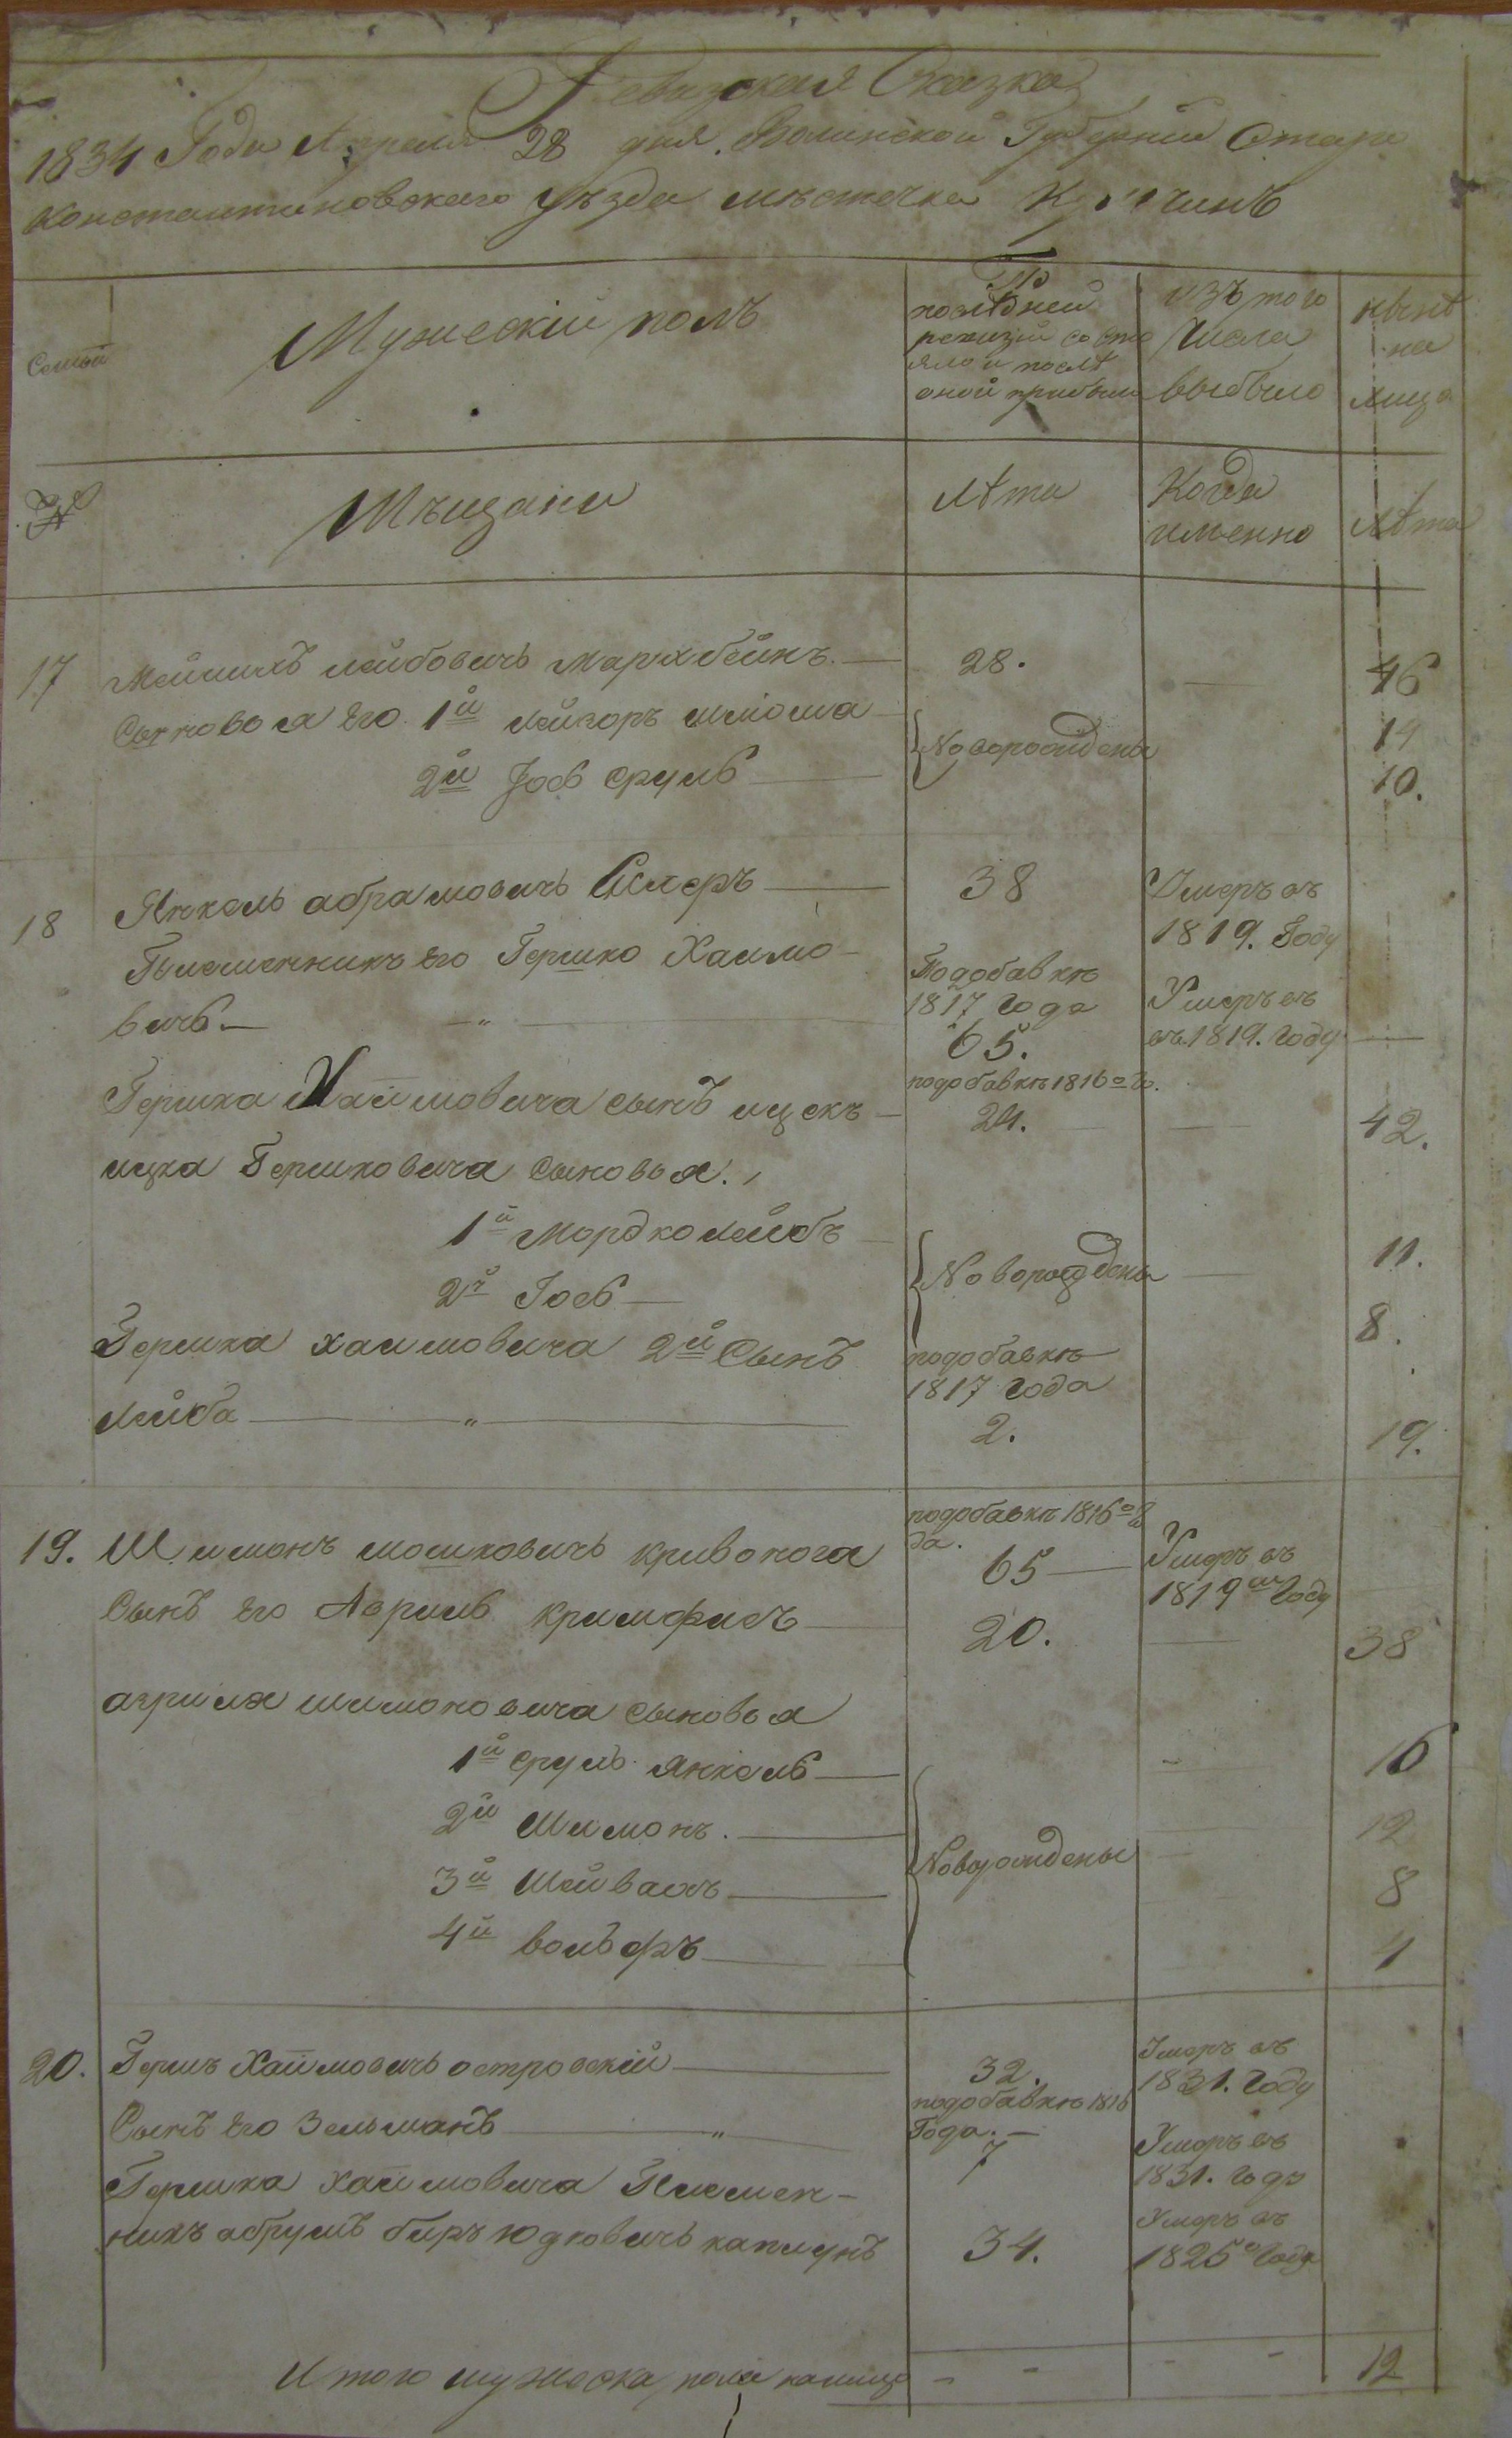 Ревизская Сказка
1834 Года Апреля 28 дня. Волинской Губернии Старо
константиновского уѣзда мѣстечка
Семьи
Мужескій полъ
По
послѣдней
ревизіи состо
яло и послѣ
оной прибыло
изъ того
числа
выбыло
нынѣ
на
лицо
№
Мѣщани
лѣта
Когда
именно
лѣта
17 лейбовичъ 28. 46
Сыновья его 1й Лейзоръ шліома Новорождены 19
2й Іось сруль 10.
18 Янкель абрамовичъ 38 Умеръ въ
1819. Году
Племенникъ его Гершко Хаимо-
вичь — " —
Подобавкѣ
1817 года
65.
Умеръ въ
въ 1819. году
Гершка Хаимовича сынъ ицекъ
подобавкѣ 1816о го.
24. 42.
ицка Гершковича сыновья.
1й Мордко лейбъ Новорожденъ 11.
2й Іось 8.
Гершка хаимовича 2й Сынъ
лейба — " —
подобавкѣ
1817 года
2. 19.
19. Шимонъ мошковичъ кривонога
подобавкѣ 1816о го
да.
65 Умеръ въ
1819ом Году
Сынъ его Азриль кримфисъ 20. 38
азриля шимоновича сыновья
1й сруль янкель 16
2й Шимонъ. 12
3й Шейвахъ Новорождены 8
4й вольфъ 4
20. Гершъ Хаимовичъ островскій 32. Умеръ въ
1831. Году
Сынъ его Зельманъ — " —
подобавкѣ 1816
Года.
7
Умеръ въ
1831. году
Гершка хаимовича Племен-
никъ абрумъ беръ юдковичъ каплунъ 34. Умеръ въ
1825о Года
Итого мужеска пола налицо 12